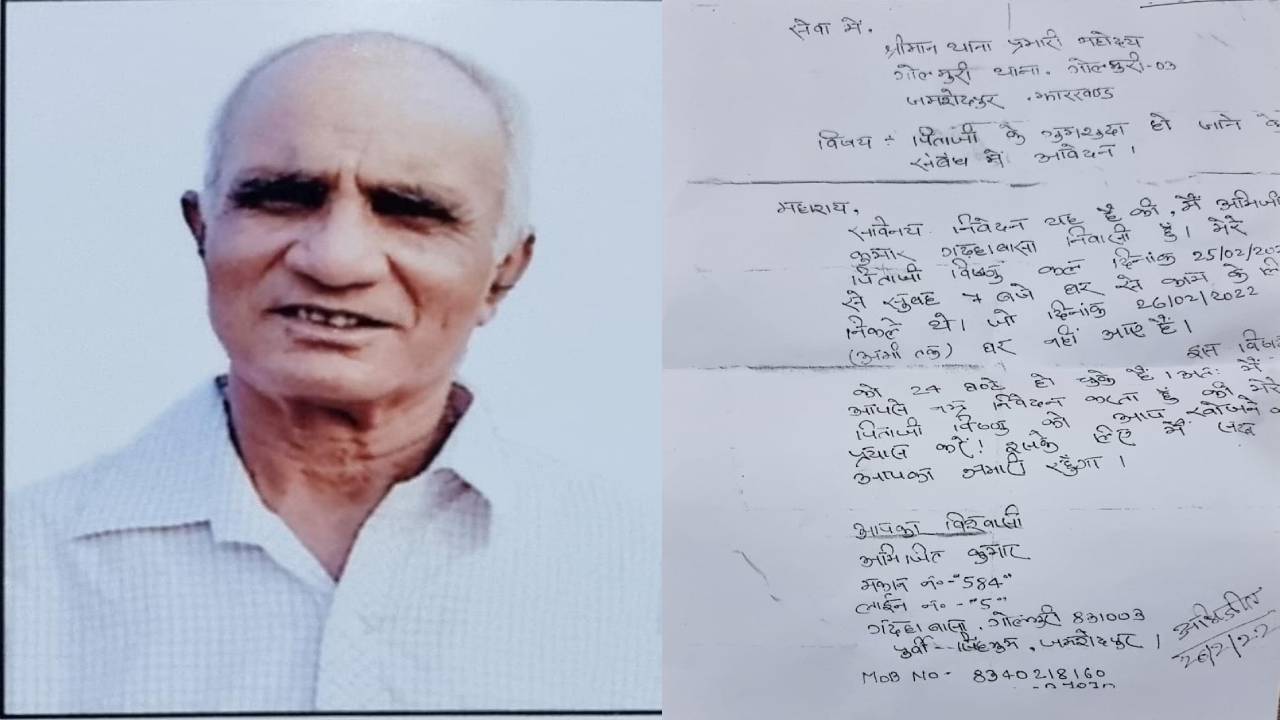 सेवा में,
श्रीमान थाना प्रभारी महोदय
गोलमुरी थाना. गोलमुरी-03
जमशेदपुर . झारखण्ड
विषय :- पिताजी के गुमशुदा हो जाने के
संबंध में आवेदन ।
महाशय,
सविनय निवेदन यह है की, मैं अभिजी
कुमार गदहाबासा निवासी हूँ। मेरे
पिताजी विष्णु कल दिनांक 25/02/202
से सुबह 7 बजे घर से काम के लि
निकले थे। जो दिनांक 26/02/2022
(अभी तक) घर नहीं आए हैं।
इस विषय
को 24 घण्टे हो चुके हैं। अतः मैं
आपसे नम्र निवेदन करता हूं की मेरे
पिताजी विष्णु को आप खोजने क
प्रयास करें! इसके लिए मैं सदा
आपका अभारी रहूँगा ।
आपका विश्वासी
अभिजित कुमार
मकान नं०-"584"
लाईन नं० -"5"
गदहाबासा, गोलमुरी 831003
पूर्वी सिंहभुम, जमशेदपुर ।
अभिजीत
26/2/22
MOB NO- 8340218160